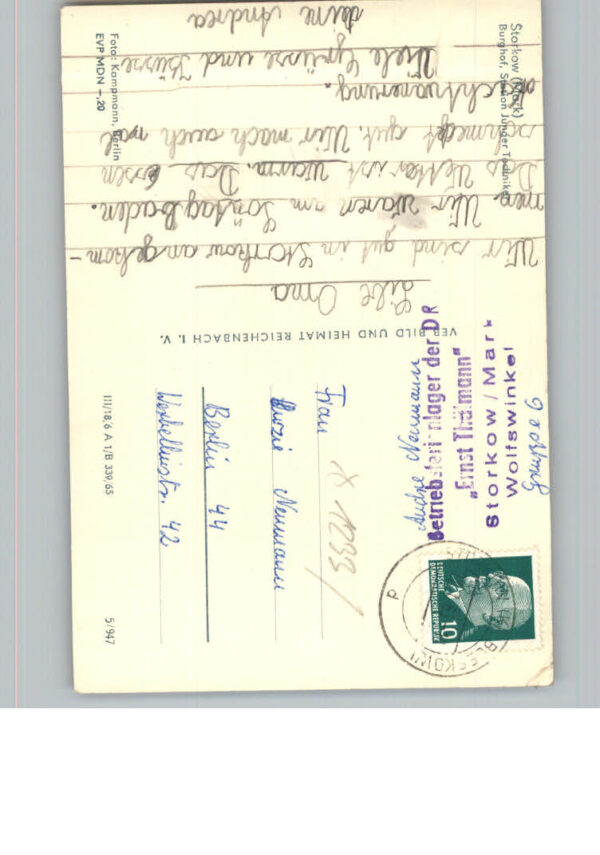 Storkow (Mark)
Burghof, Station Junger Techniker
Liebe Oma
Wir sind gut in Storkow angekom-
men. Wir waren am Sonntag baden.
Das Wetter ist warm. Das Essen
schmegt gut. Wir mach auch mal
Nachtwanerung.
Viele Grüsse und Küsse
deine Andrea
Foto: Kampmann, Berlin
EVP MDN –,20
VEB BILD UND HEIMAT REICHENBACH I. V.
Neumann
Betriebsferienlager der DR
„Ernst Thälmann"
Storkow/Mark
Wolfswinkel
Gruppe 6
DEUTSCHE
DEMOKRATISCHE REPUBLIK
10
BEESKOW
d
Frau
Neumann
Berlin 44
Werbellinstr. 42
III/18,6 A 1/B 339/65
5/947